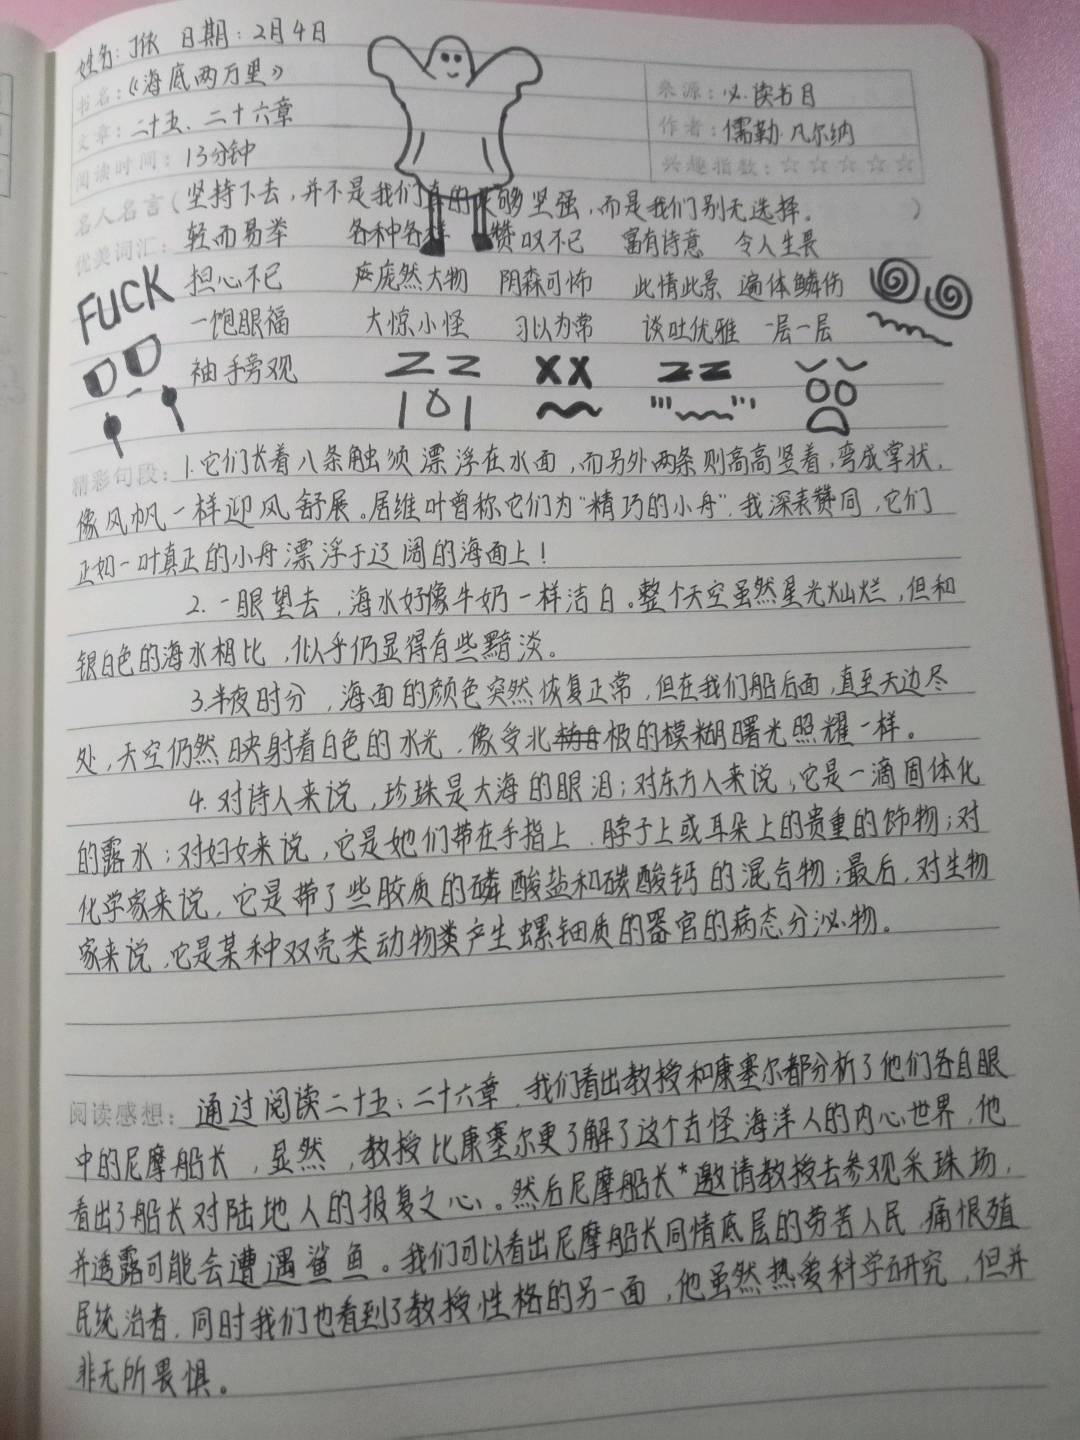 姓名: JTK 日期: 2月4日
书名:《海底两万里》 来源: 必读书目
文章: 二十五、二十六章 作者: 儒勒·凡尔纳
阅读时间: 13分钟 兴趣指数: ☆☆☆☆☆
名人名言(坚持下去,并不是我们真的够坚强,而是我们别无选择。)
优美词汇: 轻而易举 各种各样 赞叹不已 富有诗意 令人生畏
FUCK 担心不已 庞然大物 阴森可怖 此情此景 遍体鳞伤
一饱眼福 大惊小怪 习以为常 谈吐优雅 一层一层
袖手旁观
精彩句段: 1.它们长着八条触须漂浮在水面,而另外两条则高高竖着,弯成掌状,
像风帆一样迎风舒展。居维叶曾称它们为“精巧的小舟”,我深表赞同,它们
正如一叶真正的小舟漂浮于辽阔的海面上!
2. 一眼望去,海水好像牛奶一样洁白。整个天空虽然星光灿烂,但和
银白色的海水相比,似乎仍显得有些黯淡。
3.半夜时分,海面的颜色突然恢复正常,但在我们船后面,直至天边尽
处,天空仍然映射着白色的水光,像受北极的模糊曙光照耀一样。
4. 对诗人来说,珍珠是大海的眼泪;对东方人来说,它是一滴固体化
的露水;对妇女来说,它是她们带在手指上、脖子上或耳朵上的贵重的饰物;对
化学家来说,它是带了些胶质的磷酸盐和碳酸钙的混合物;最后,对生物
家来说,它是某种双壳类动物类产生螺钿质的器官的病态分泌物。
阅读感想: 通过阅读二十五、二十六章,我们看出教授和康塞尔都分析了他们各自眼
中的尼摩船长,显然,教授比康塞尔更了解了这个古怪海洋人的内心世界,他
看出了船长对陆地人的报复之心。然后尼摩船长*邀请教授去参观采珠场,
并透露可能会遭遇鲨鱼。我们可以看出尼摩船长同情底层的劳苦人民,痛恨殖
民统治者,同时我们也看到了教授性格的另一面,他虽然热爱科学研究,但并
非无所畏惧。